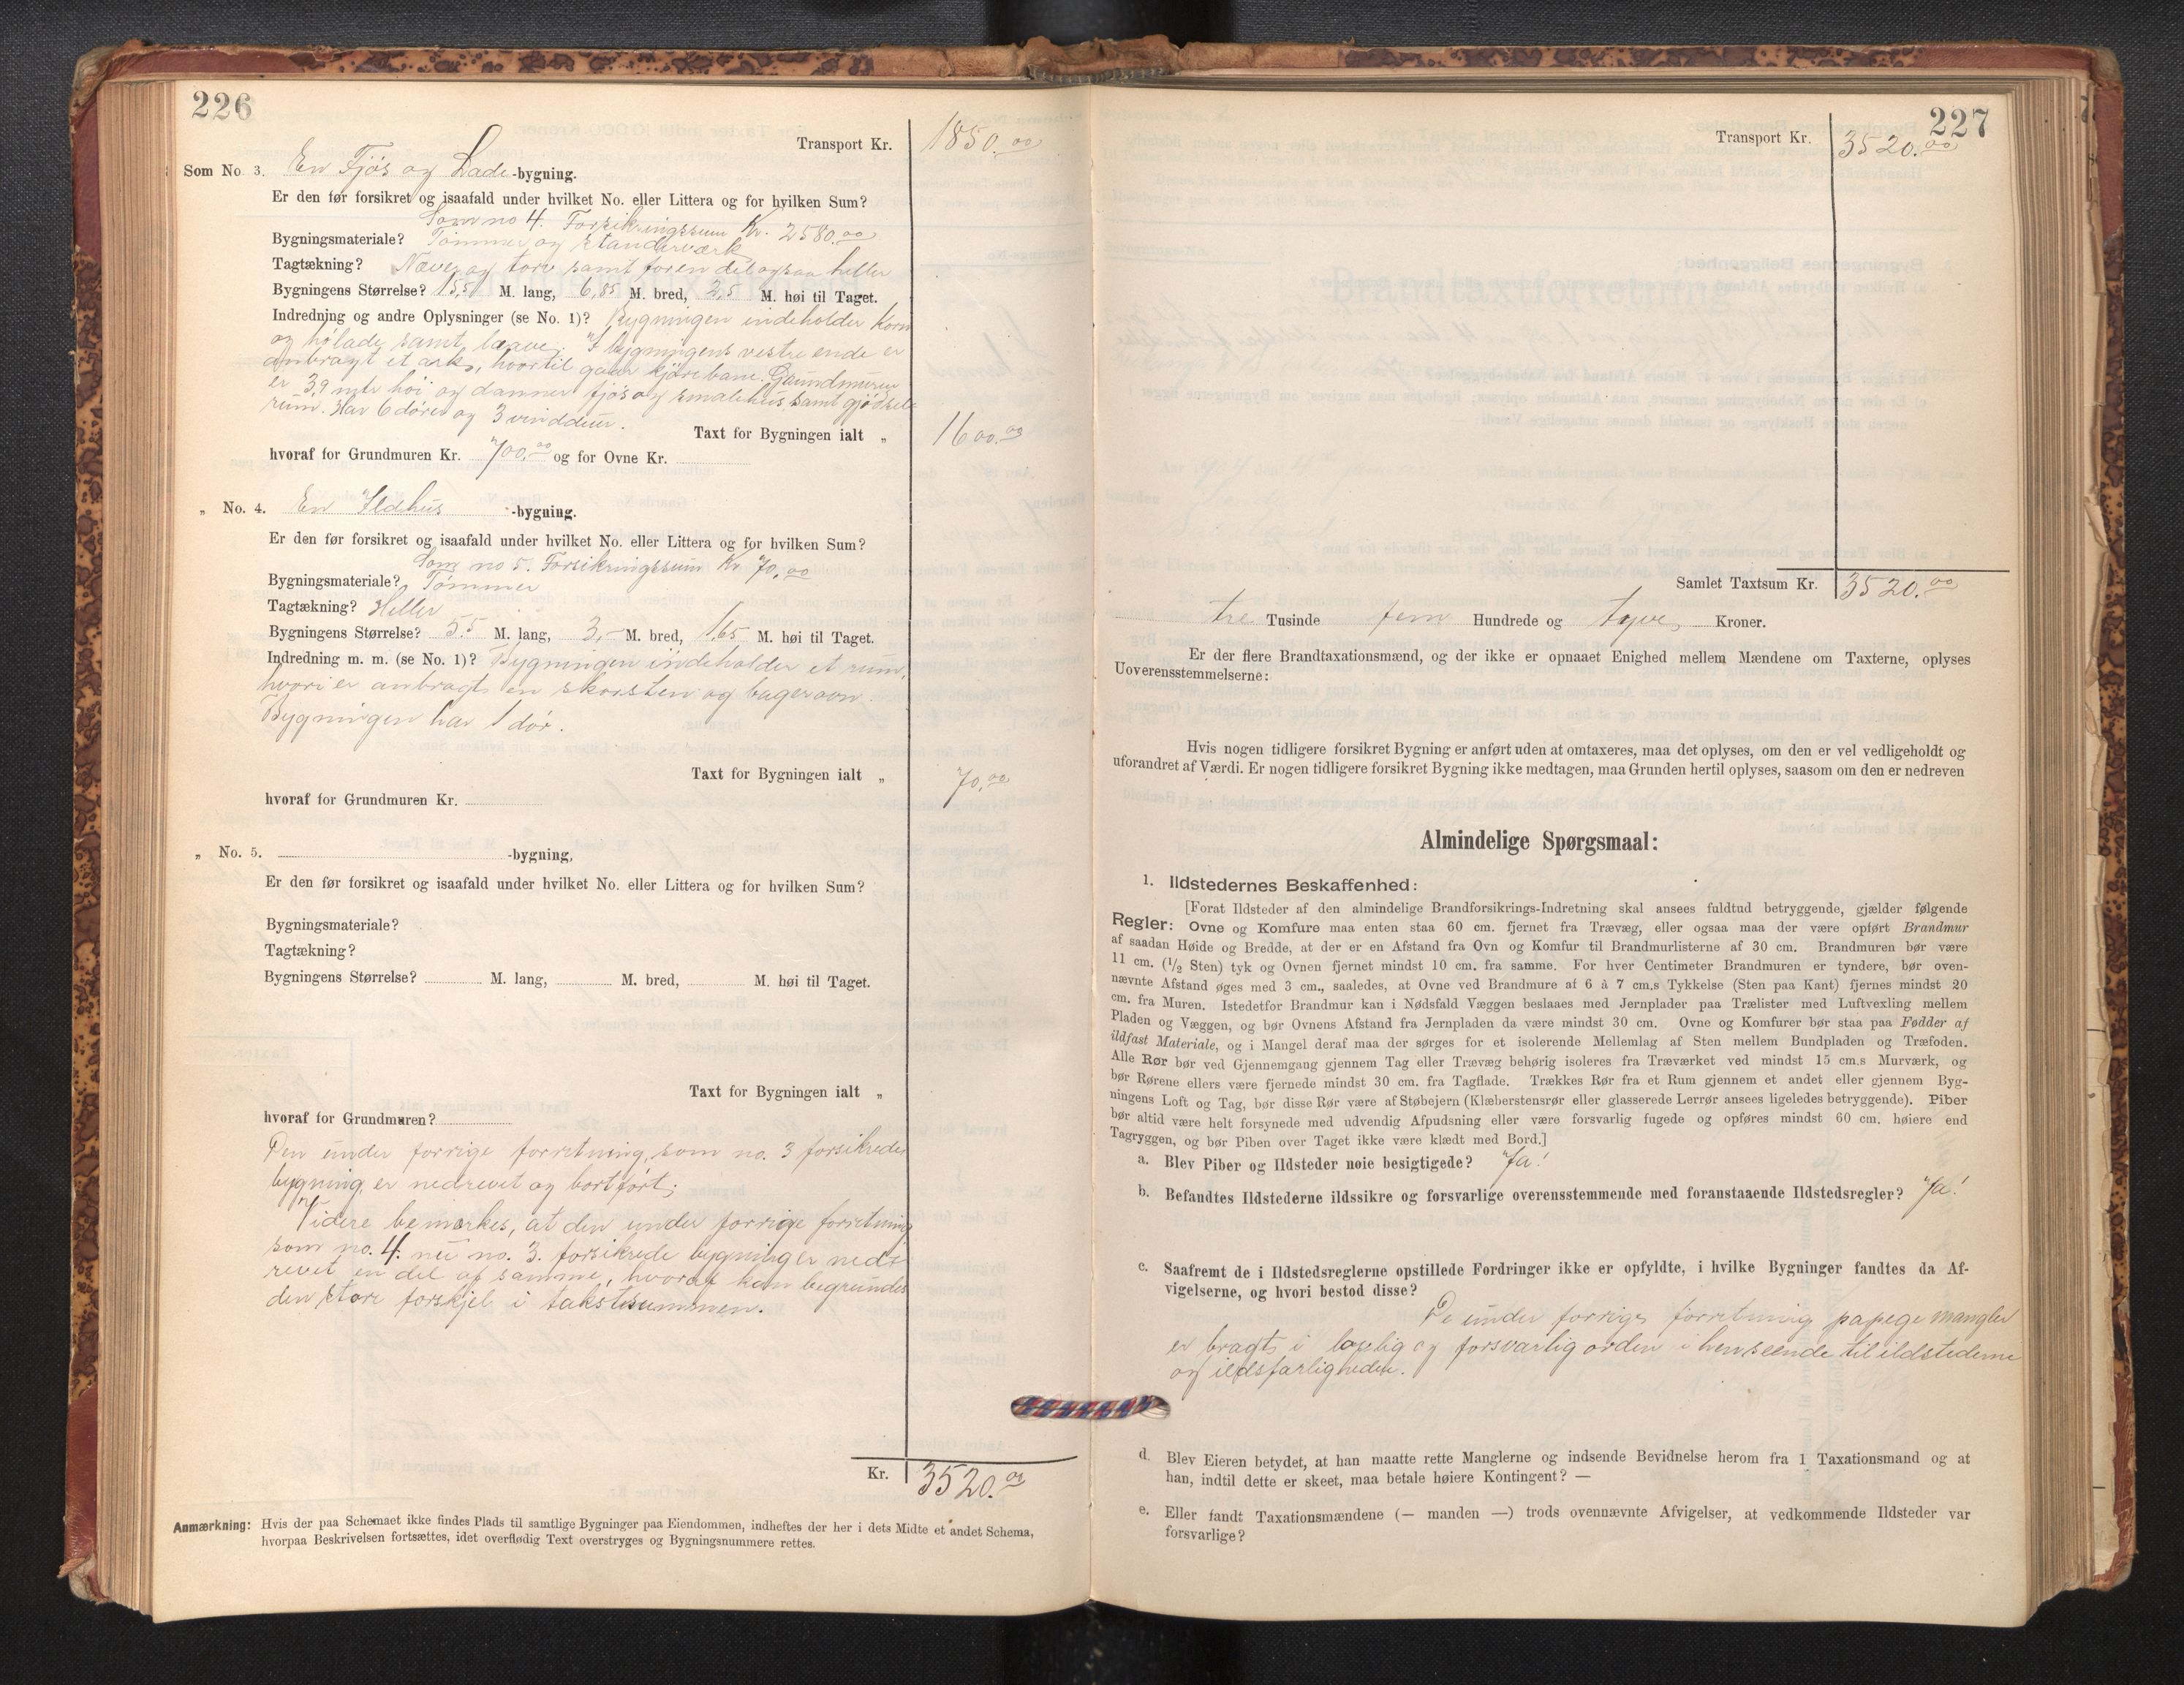 226
Transport Kr. 1850.00
Som No. 3. En Fjøs og Lade-bygning.
Er den før forsikret og isaafald under hvilket No. eller Littera og for hvilken Sum?
Som no 4. Forsikringssum Kr. 2580.00
Bygningsmateriale? Tømmer og standerværk
Tagtækning? Næver og torv samt for en del ogsaa heller
Bygningens Størrelse? 15,51 M. lang, 6,85 M. bred, 2,5 M. høi til Taget.
Indredning og andre Oplysninger (se No. 1)? Bygningen indeholder Korn
og hølade, samt løave. I bygningens vestre ende er
anbragt et ark, hvortil gaar kjørebane. Grundmuren
er 3,9 mtr høi og danner fjøs og smalehus samt gjødsel-
rum. Har 6 døre og 3 vindduer.
Taxt for Bygningen ialt „ 1600.00
hvoraf for Grundmuren Kr. 700.00 og for Ovne Kr.
„ No. 4. En Ildehus -bygning.
Er den før forsikret og isaafald under hvilket No. eller Littera og for hvilken Sum?
Som no 5. Forsikringssum Kr 70,00
Bygningsmateriale? Tømmer
Tagtækning? Heller
Bygningens Størrelse? 5.5 M. lang, 3,- M. bred, 1,65 M. høi til Taget.
Indredning m. m. (se No. 1)? Bygningen indeholder et rum,
hvori er anbragt en skorsten og bagerovn.
Bygningen har 1 dør.
Taxt for Bygningen ialt „ 70,00
hvoraf for Grundmuren Kr.
„ No. 5. -bygning,
Er den før forsikret og isaafald under hvilket No. eller Littera og for hvilken Sum?
Bygningsmateriale?
Tagtækning?
Bygningens Størrelse? M. lang, M. bred, M. høi til Taget.
Taxt for Bygningen ialt „
hvoraf for Grundmuren?
Den under forrige forretning, som no. 3 forsikrede
bygning, er nedrevet og bortført;
Videre bemerkes, at den under forrige forretning
som no. 4. nu no. 3. forsikrede bygning er ned-
revet en del af samme, hvoraf kan begrundes
den store forskjel i takstsummen.
Kr. 3520.00
Anmærkning: Hvis der paa Schemaet ikke findes Plads til samtlige Bygninger paa Eiendommen, indheftes der her i dets Midte et andet Schema,
hvorpaa Beskrivelsen fortsættes, idet overflødig Text overstryges og Bygningsnummere rettes.
227
Transport Kr. 3520.00
Samlet Taxtsum Kr. 3520.00
tre Tusinde fem Hundrede og tyve Kroner.
Er der flere Brandtaxationsmænd, og der ikke er opnaaet Enighed mellem Mændene om Taxterne, oplyses
Uoverensstemmelserne:
Hvis nogen tidligere forsikret Bygning er anført uden at omtaxeres, maa det oplyses, om den er vel vedligeholdt og
uforandret af Værdi. Er nogen tidligere forsikret Bygning ikke medtagen, maa Grunden hertil oplyses, saasom om den er nedreven
Almindelige Spørgsmaal:
1. Ildstedernes Beskaffenhed:
[Forat Ildsteder af den almindelige Brandforsikrings-Indretning skal ansees fuldtud betryggende, gjælder følgende
Regler: Ovne og Komfure maa enten staa 60 cm. fjernet fra Trævæg, eller ogsaa maa der være opført Brandmur
af saadan Høide og Bredde, at der er en Afstand fra Ovn og Komfur til Brandmurlisterne af 30 cm. Brandmuren bør være
11 cm. (1/2 Sten) tyk og Ovnen fjernet mindst 10 cm. fra samme. For hver Centimeter Brandmuren er tyndere, bør oven-
nævnte Afstand øges med 3 cm., saaledes, at Ovne ved Brandmure af 6 à 7 cm.s Tykkelse (Sten paa Kant) fjernes mindst 20
cm. fra Muren. Istedetfor Brandmur kan i Nødsfald Væggen beslaaes med Jernplader paa Trælister med Luftvexling mellem
Pladen og Væggen, og bør Ovnens Afstand fra Jernpladen da være mindst 30 cm. Ovne og Komfurer bør staa paa Fødder af
ildfast Materiale, og i Mangel deraf maa der sørges for et isolerende Mellemlag af Sten mellem Bundpladen og Træfoden.
Alle Rør bør ved Gjennemgang gjennem Tag eller Trævæg behørig isoleres fra Træværket ved mindst 15 cm.s Murværk, og
bør Rørene ellers være fjernede mindst 30 cm. fra Tagflade. Trækkes Rør fra et Rum gjennem et andet eller gjennem Byg-
ningens Loft og Tag, bør disse Rør være af Støbejern (Klæberstensrør eller glasserede Lerrør ansees ligeledes betryggende). Piber
bør altid være helt forsynede med udvendig Afpudsning eller være forsvarlig fugede og opføres mindst 60 cm. høiere end
Tagryggen, og bør Piben over Taget ikke være klædt med Bord.]
a. Blev Piber og Ildsteder nøie besigtigede? Ja!
b. Befandtes Ildstederne ildssikre og forsvarlige overensstemmende med foranstaaende Ildstedsregler? Ja!
c. Saafremt de i Ildstedsreglerne opstillede Fordringer ikke er opfyldte, i hvilke Bygninger fandtes da Af-
vigelserne, og hvori bestod disse?
De under forrige forretning papege mangler
er bragt i lovelig og forsvarlig orden i henseende til ildstederne
og ildsfarligheden.
d. Blev Eieren betydet, at han maatte rette Manglerne og indsende Bevidnelse herom fra 1 Taxationsmand og at
han, indtil dette er skeet, maa betale høiere Kontingent? —
e. Eller fandt Taxationsmændene (— manden —) trods ovennævnte Afvigelser, at vedkommende Ildsteder var
forsvarlige?